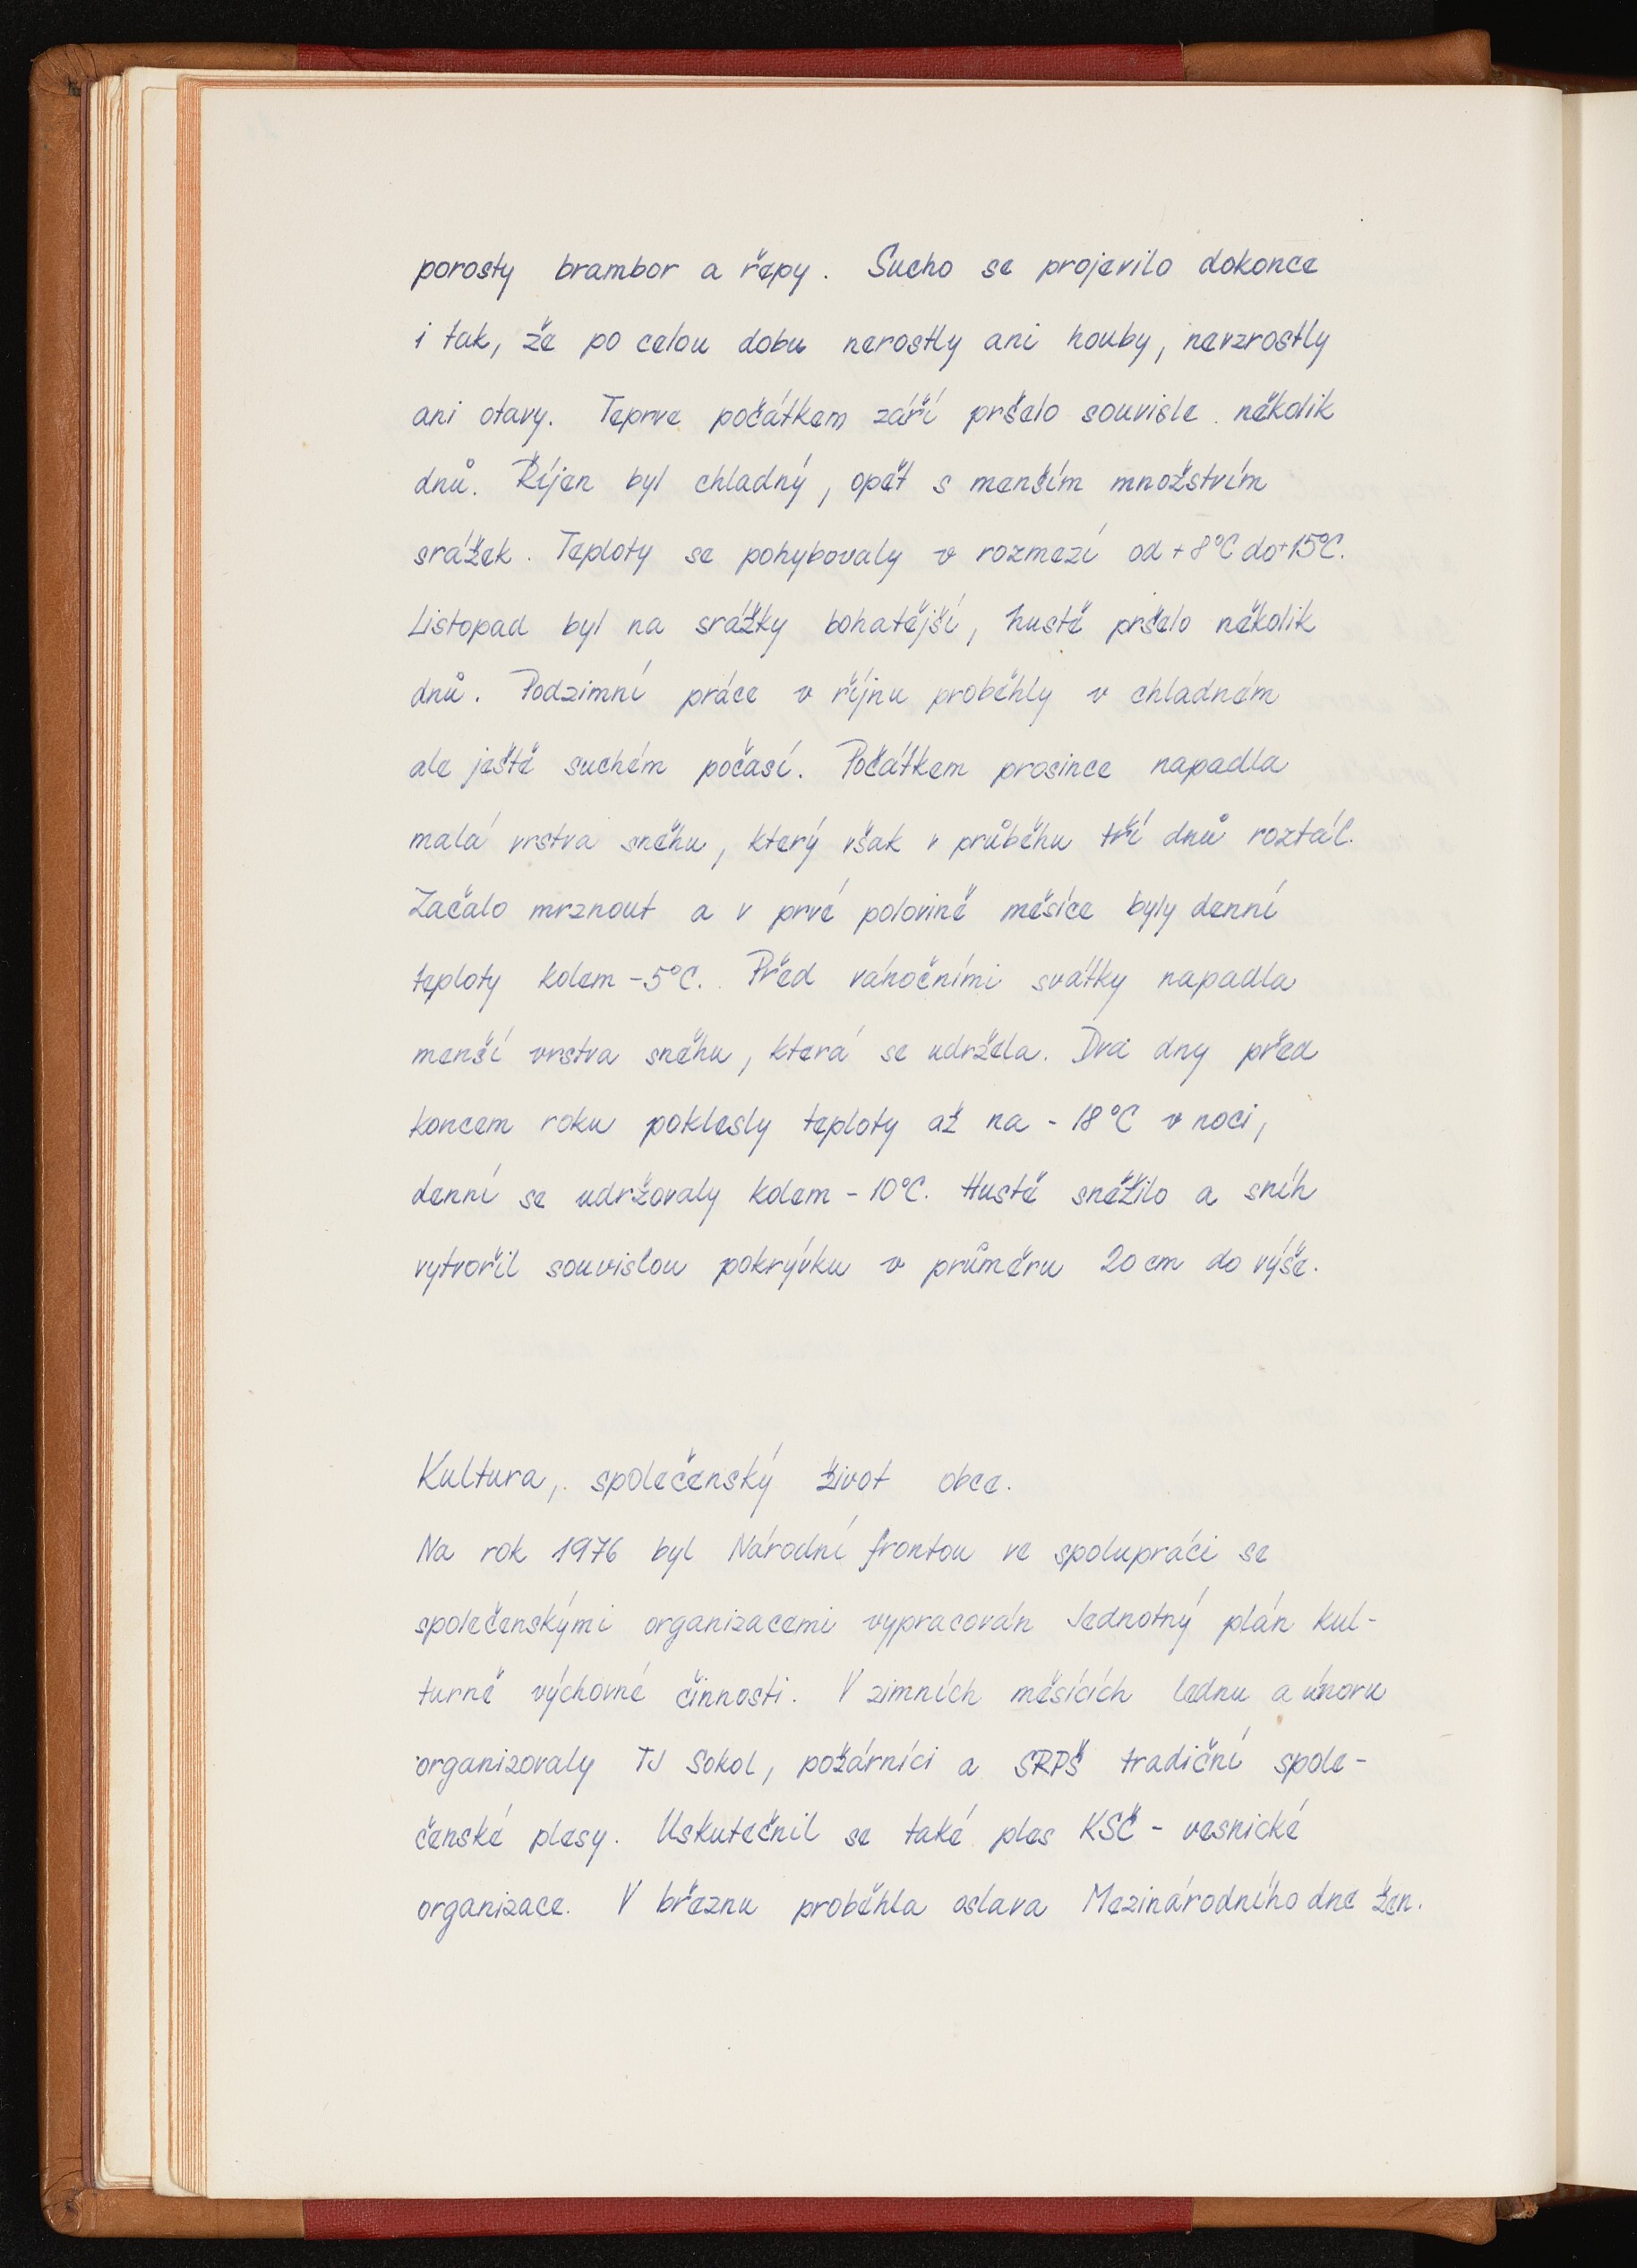 porosty brambor a řepy. Sucho se projevilo dokonce
i tak, že po celou dobu nerostly ani houby, nevzrostly
ani otavy. Teprve počátkem září pršelo souvisle několik
dnů. Říjen byl chladný, opět s menším množstvím
srážek. Teploty se pohybovaly v rozmezí od +8°C do +15°C.
Listopad byl na srážky bohatější, hustě pršelo několik
dnů. Podzimní práce v říjnu proběhly v chladném
ale ještě suchém počasí. Počátkem prosince napadla
malá vrstva sněhu, který však v průběhu tří dnů roztál.
Začalo mrznout a v prvé polovině měsíce byly denní
teploty kolem -5°C. Před vánočními svátky napadla
menší vrstva sněhu, která se udržela. Dva dny před
koncem roku poklesly teploty až na - 18°C v noci,
denní se udržovaly kolem - 10°C. Hustě sněžilo a sníh
vytvořil souvislou pokrývku v průměru 20 cm do výše.
Kultura, společenský život obce.
Na rok 1976 byl Národní frontou ve spolupráci se
společenskými organizacemi vypracován Jednotný plán kul-
turně výchovné činnosti. V zimních měsících lednu a únoru
organizovaly TJ Sokol, požárníci a SRPŠ tradiční spole-
čenské plesy. Uskutečnil se také ples KSČ - vesnické
organizace. V březnu proběhla oslava Mezinárodního dne žen.